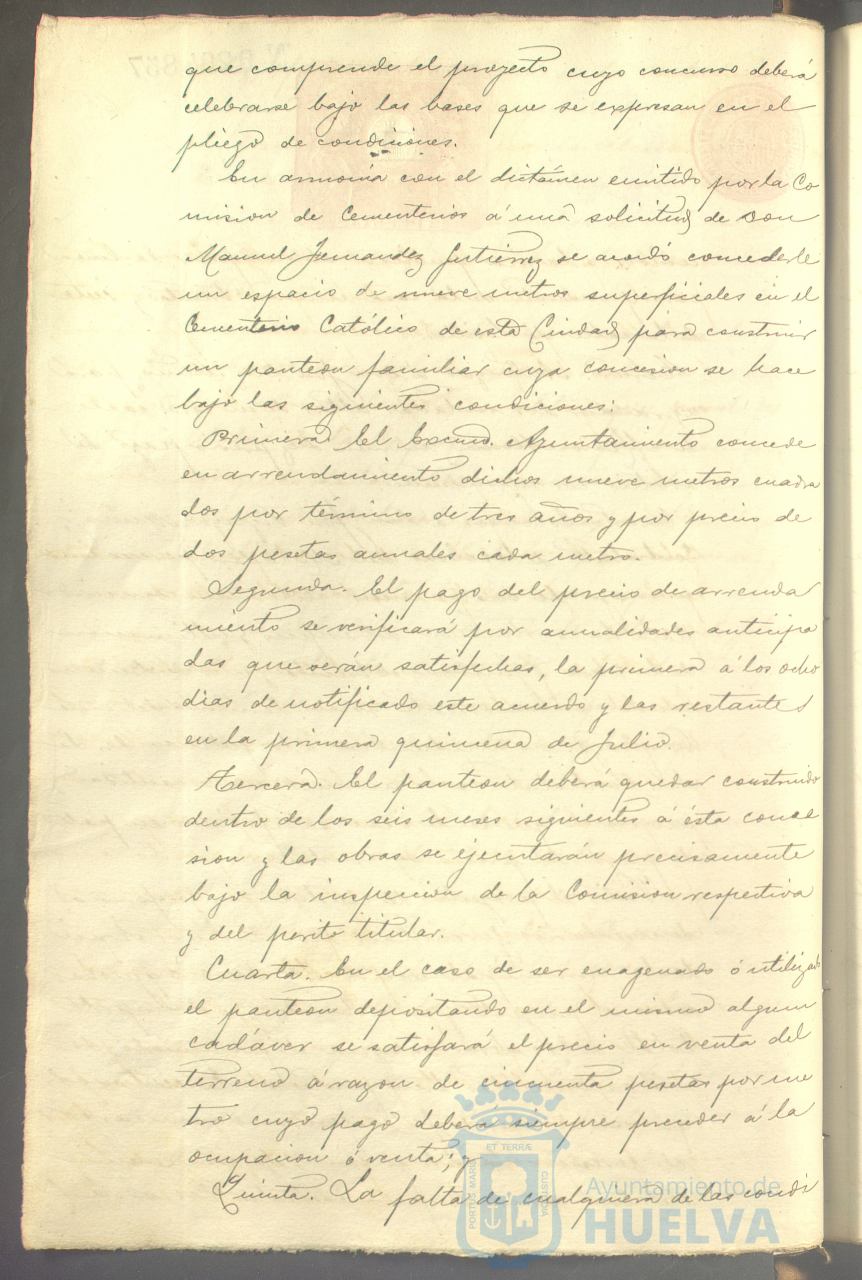 que comprende el proyecto cuyo concurso deberá
celebrarse bajo las bases que se expresan en el
pliego de condiciones.
En armonía con el dictámen emitido por la Co
mision de Cementerios á una solicitud de Don
Manuel Fernandez Gutiérrez se acordó concederle
un espacio de nueve metros superficiales en el
Cementerio Católico de esta Ciudad para construir
un panteon familiar cuya concesion se hace
bajo las siguientes condiciones:
Primera. El Excmo. Ayuntamiento concede
en arrendamiento dichos nueve metros cuadra
dos por término de tres años y por precio de
dos pesetas anuales cada metro.
Segunda. El pago del precio de arrenda
miento se verificará por anualidades anticipa
das que serán satisfechas, la primera á los ocho
dias de notificado este acuerdo y las restantes
en la primera quincena de Julio.
Tercera. El panteon deberá quedar construido
dentro de los seis meses siguientes á ésta conce
sion y las obras se ejecutarán precisamente
bajo la inspeccion de la Comision respectiva
y del perito titular.
Cuarta. En el caso de ser enagenado ó utilizado
el panteon depositando en el mismo algun
cadáver se satisfará el precio en venta del
terreno á razon de cincuenta pesetas por me
tro cuyo pago deberá siempre preceder á la
ocupacion ó venta; y
Quinta. La falta de cualquiera de las condi
PORTUS MARIS ET TERRÆ CUSTODIA
Ayuntamiento de
HUELVA